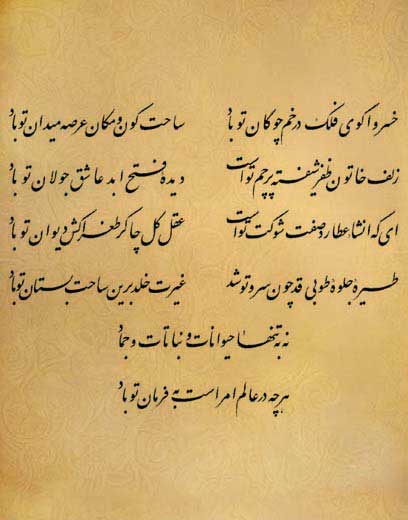 خسروا گوی فلک در خم چوگان تو باد ساحت کون و مکان عرصه میدان تو باد
زلف خاتون ظفر شیفته پرچم توست دیده فتح ابد عاشق جولان تو باد
ای که انشا عطارد صفت شوکت توست عقل کل چاکر طغراکش دیوان تو باد
طیره جلوه طوبی قد چون سرو تو شد غیرت خلد برین ساحت بستان تو باد
نه به تنها حیوانات و نباتات و جماد
هر چه در عالم امر است به فرمان تو باد